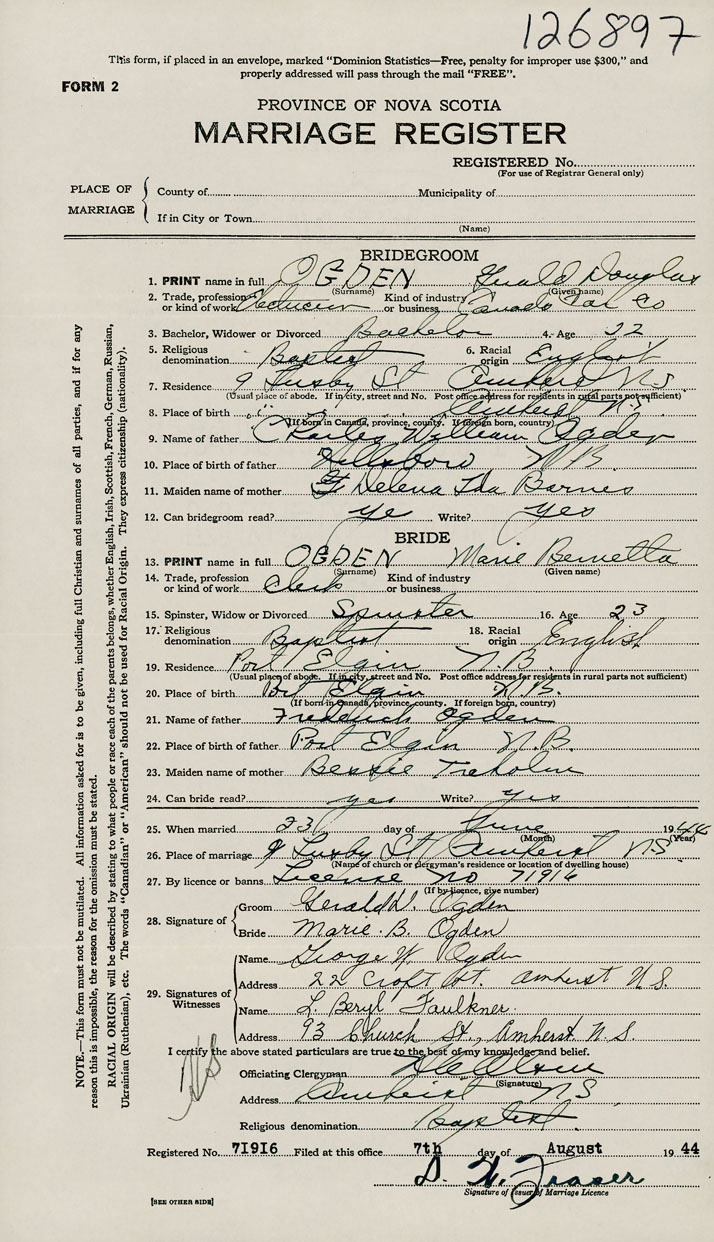 126897
This form, if placed in an envelope, marked "Dominion Statistics—Free, penalty for improper use $300," and
properly addressed will pass through the mail "FREE".
FORM 2
PROVINCE OF NOVA SCOTIA
MARRIAGE REGISTER
REGISTERED No.
(For use of Registrar General only)
PLACE OF MARRIAGE
County of Municipality of
If in City or Town
(Name)
BRIDEGROOM
1. PRINT name in full OGDEN Gerald Douglas
(Surname) (Given name)
2. Trade, profession or kind of work Kind of industry or business Canada Car Co
3. Bachelor, Widower or Divorced Bachelor 4. Age 22
5. Religious denomination Baptist 6. Racial origin English
7. Residence 9 Lusby St Amherst N.S.
(Usual place of abode. If in city, street and No. Post office address for residents in rural parts not sufficient)
8. Place of birth Amherst N.S.
(If born in Canada, province, county. If foreign born, country)
9. Name of father Charles William Ogden
10. Place of birth of father Hillsboro N.B.
11. Maiden name of mother Delena Ida Barnes
12. Can bridegroom read? yes Write? yes
BRIDE
13. PRINT name in full OGDEN Marie Bernetta
(Surname) (Given name)
14. Trade, profession or kind of work Clerk Kind of industry or business
15. Spinster, Widow or Divorced Spinster 16. Age 23
17. Religious denomination Baptist 18. Racial origin English
19. Residence Port Elgin N.B.
(Usual place of abode. If in city, street and No. Post office address for residents in rural parts not sufficient)
20. Place of birth Port Elgin N.B.
(If born in Canada, province, county. If foreign born, country)
21. Name of father Frederick Ogden
22. Place of birth of father Port Elgin N.B.
23. Maiden name of mother Bessie Treholm
24. Can bride read? yes Write? yes
25. When married 23 day of June 1944
(Month) (Year)
26. Place of marriage 9 Lusby St Amherst N.S.
(Name of church or clergyman's residence or location of dwelling house)
27. By licence or banns License No 71916
(If by licence, give number)
28. Signature of
Groom Gerald D. Ogden
Bride Marie B. Ogden
29. Signatures of Witnesses
Name George W. Ogden
Address 22 Croft St. Amherst N.S.
Name L. Beryl Faulkner
Address 93 Church St., Amherst N.S.
I certify the above stated particulars are true to the best of my knowledge and belief.
Officiating Clergyman
(Signature)
Address Amherst N S
Religious denomination Baptist
Registered No. 71916 Filed at this office 7th day of August 1944
D. W. Fraser
Signature of Issuer of Marriage Licence
[SEE OTHER SIDE]
NOTE.—This form must not be mutilated. All information asked for is to be given, including full Christian and surnames of all parties, and if for any
reason this is impossible, the reason for the omission must be stated.
RACIAL ORIGIN will be described by stating to what people or race each of the parents belongs, whether English, Irish, Scottish, French, German, Russian,
Ukrainian (Ruthenian), etc. The words "Canadian" or "American" should not be used for Racial Origin. They express citizenship (nationality).